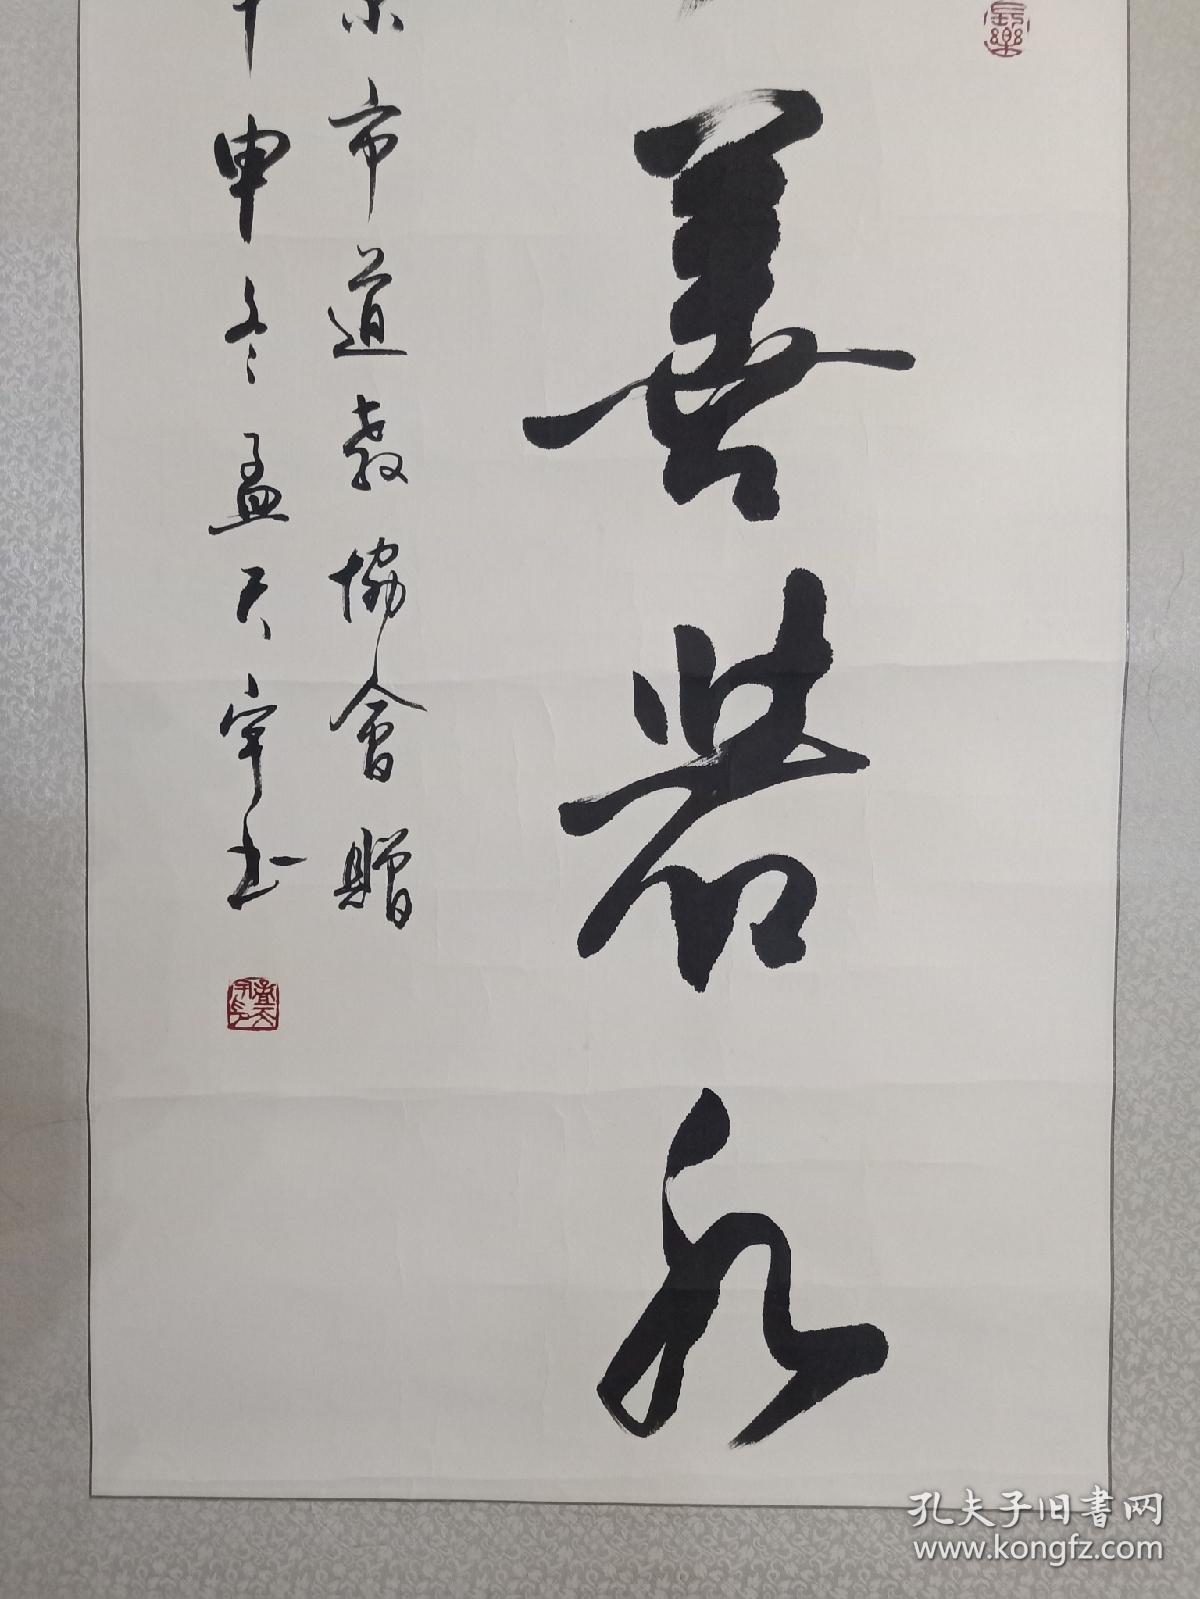 善若水
市道教協會贈
申冬孟天宇书
孔夫子旧書网
www.kongfz.com